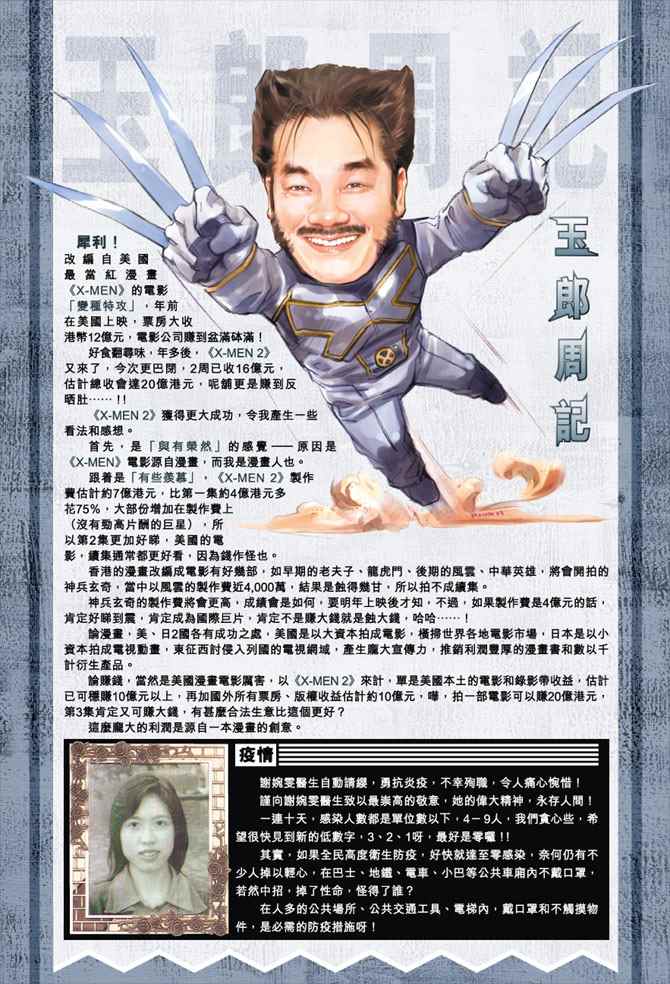 玉郎周記
玉
郎
周
記
犀利！
改編自美國
最當紅漫畫
《X-MEN》的電影
「變種特攻」，年前
在美國上映，票房大收
港幣12億元，電影公司賺到盆滿砵滿！
好食翻尋味，年多後，《X-MEN 2》
又來了，今次更巴閉，2周已收16億元，
估計總收會達20億港元，呢舖更是賺到反
晒肚……!!
《X-MEN 2》獲得更大成功，令我產生一些
看法和感想。
首先，是「與有榮然」的感覺 —— 原因是
《X-MEN》電影源自漫畫，而我是漫畫人也。
跟着是「有些羨慕」，《X-MEN 2》製作
費估計約7億港元，比第一集約4億港元多
花75%，大部份增加在製作費上
（沒有勁高片酬的巨星），所
以第2集更加好睇，美國的電
影，續集通常都更好看，因為錢作怪也。
香港的漫畫改編成電影有好幾部，如早期的老夫子、龍虎門、後期的風雲、中華英雄，將會開拍的
神兵玄奇，當中以風雲的製作費近4,000萬，結果是蝕得幾甘，所以拍不成續集。
神兵玄奇的製作費將會更高，成績會是如何，要明年上映後才知，不過，如果製作費是4億元的話，
肯定好睇到震，肯定成為國際巨片，肯定不是賺大錢就是蝕大錢，哈哈……！
論漫畫，美、日2國各有成功之處，美國是以大資本拍成電影，橫掃世界各地電影市場，日本是以小
資本拍成電視動畫，東征西討侵入列國的電視網域，產生龐大宣傳力，推銷利潤豐厚的漫畫書和數以千
計衍生產品。
論賺錢，當然是美國漫畫電影厲害，以《X-MEN 2》來計，單是美國本土的電影和錄影帶收益，估計
已可穩賺10億元以上，再加國外所有票房、版權收益估計約10億元，嘩，拍一部電影可以賺20億港元，
第3集肯定又可賺大錢，有甚麼合法生意比這個更好？
這麼龐大的利潤是源自一本漫畫的創意。
疫情
謝婉雯醫生自動請纓，勇抗炎疫，不幸殉職，令人痛心惋惜！
謹向謝婉雯醫生致以最崇高的敬意，她的偉大精神，永存人間！
一連十天，感染人數都是單位數以下，4－9人，我們貪心些，希
望很快見到新的低數字，3、2、1呀，最好是零囉!!
其實，如果全民高度衛生防疫，好快就達至零感染，奈何仍有不
少人掉以輕心，在巴士、地鐵、電車、小巴等公共車廂內不戴口罩，
若然中招，掉了性命，怪得了誰？
在人多的公共場所、公共交通工具、電梯內，戴口罩和不觸摸物
件，是必需的防疫措施呀！